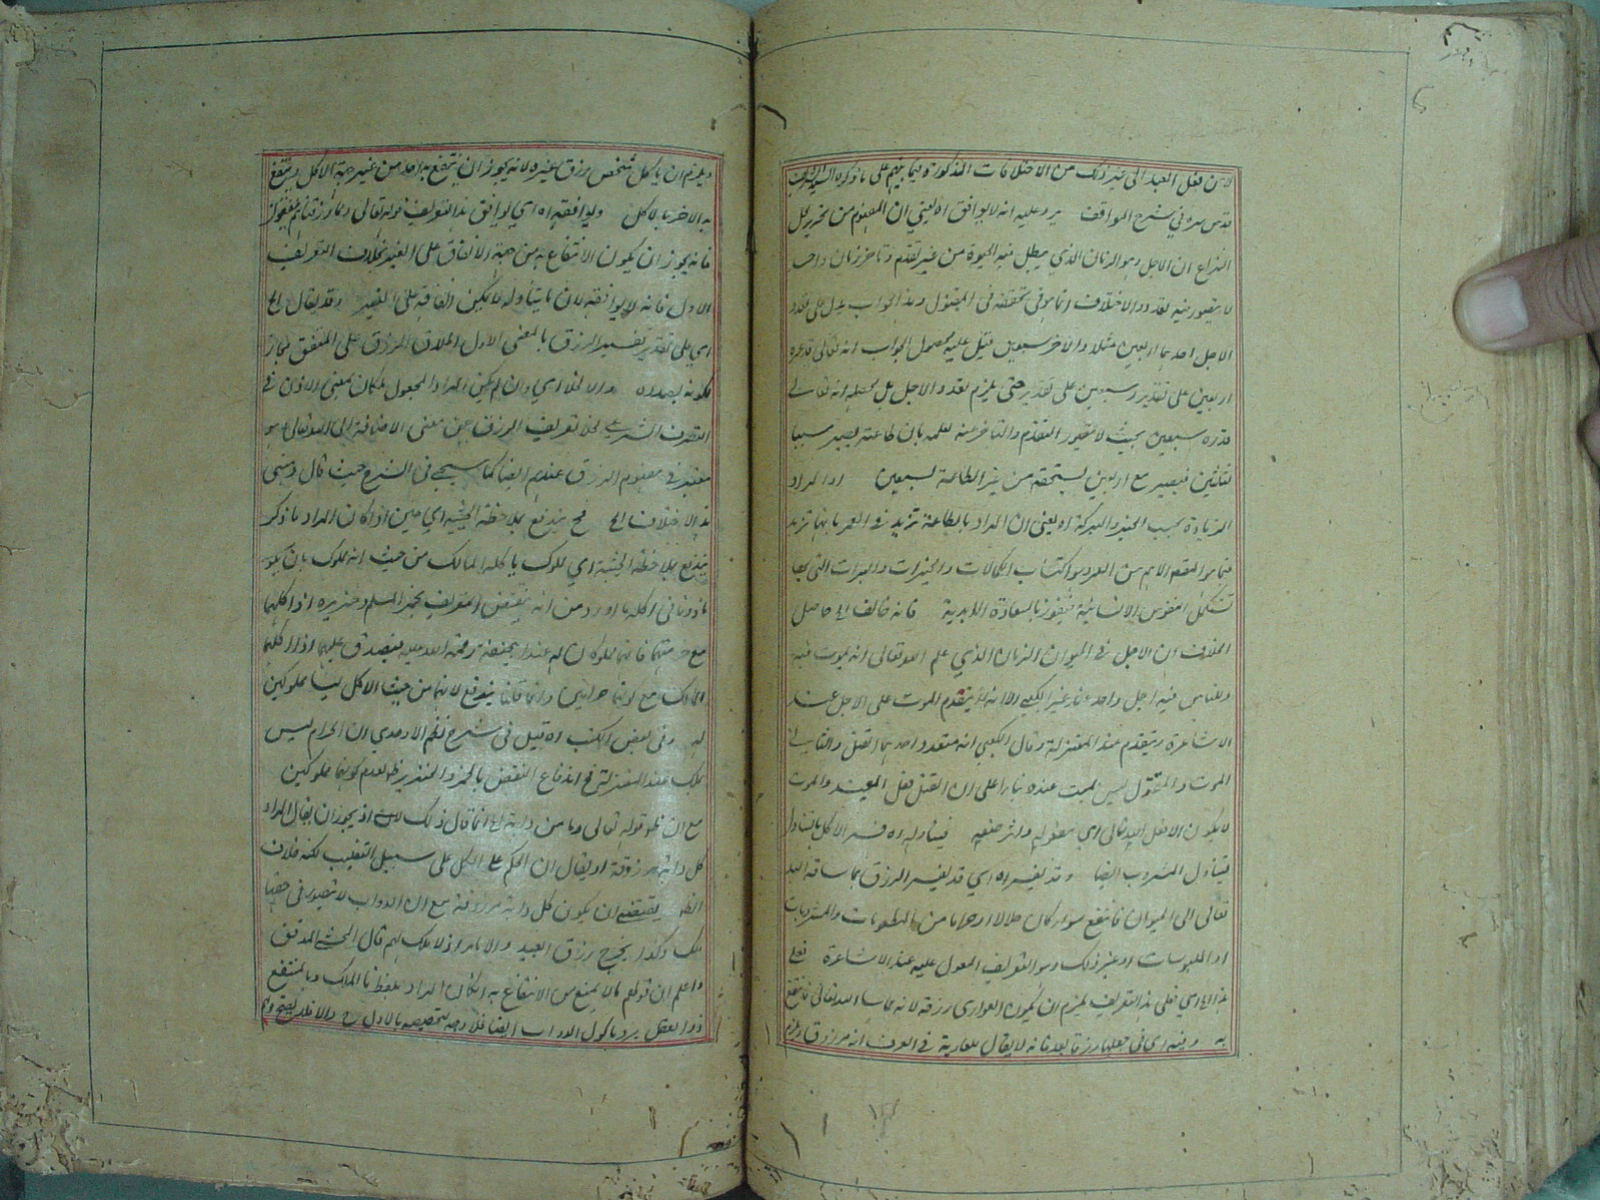 لا من فعل العبد الى غير ذلك من الاختلافات المذكورة فيما بينهم على ما ذكره السيد الشريف
قدس سره في شرح المواقف يرد عليه انه لا يوافق اه يعني ان المفهوم من تحرير محل
النزاع ان الاجل وهو الزمان الذي يبطل فيه الحيوة من غير تقدم وتاخر زمان واحد
لا يتصور فيه تعدد والاختلاف انما هو في تحققه في المقتول وهذا الجواب يدل على تعدد
الاجل احدهما اربعين مثلا والاخر سبعين فقيل عليه محصول الجواب انه تعالى قدره
اربعين على تقدير وسبعين على تقدير حتى يلزم تعدد الاجل بل محصله انه تعالى
قدره سبعين بحيث لا يتصور التقدم والتاخر عنه لعلمه بان طاعته يصير سببا
لثلثين فيصير مع اربعين يستحقه من غير الطاعة سبعين او المراد
الزيادة بحسب الخير والبركة اه يعني ان المراد بالطاعة تزيد في العمر بانها تزيد
فيما هو المقصد الاهم من العمر وهو اكتساب الكمالات والخيرات والمبرات التي بها
تستكمل النفوس الانسانية فتفوز بالسعادة الابدية فانه خالف الخ حاصل
الخلاف ان الاجل في الحيوان الزمان الذي علم الله تعالى انه يموت فيه
وللناس فيه اجل واحد عند غير الكعبي الا انه لا يتقدم الموت على الاجل عند
الاشاعرة ويتقدم عند المعتزلة وقال الكعبي انه متعدد احدهما القتل والثاني
الموت والمقتول ليس بميت عنده بناء على ان القتل فعل العبد والموت
لا يكون الا فعل الله تعالى اى مفعوله واثر صنعه فيتناوله اه فسر الاكل بالتناول
فيتناول المشروب ايضا وقد يفسر اه اي قد يفسر الرزق بما ساقه الله
تعالى الى الحيوان فانتفع سواء كان حلالا او حراما من المطعومات والمشروبات
او الملبوسات او غير ذلك وهو التعريف المعول عليه عند الاشاعرة فعلى
هذا اه اي فعلى هذا التعريف يلزم ان يكون العوارى رزقا لانه مما ساقه الله تعالى فانتفع
به وفيه اى في جعلها رزقا بعد فانه لا يقال للعارية في العرف انه مرزوق ويلزم
ويلزم ان ياكل شخص رزق غيره لانه يجوز ان ينتفع به احد من غير جهة الاكل وينتفع
به الاخر بالاكل ويوافقه اه اي يوافق هذا التعريف قوله تعالى ومما رزقناهم ينفقون
فانه يجوز ان يكون الانتفاع به من جهة الانفاق على الغير بخلاف التعريف
الاول فانه لا يوافقه لان ما يتناوله لا يمكن انفاقه على الغير وقد يقال الخ
اي على تقدير تفسير الرزق بالمعنى الاول اطلاق الرزق على المنفق مجاز
لكونه بصدده والا لخلا اي وان لم يكن المراد المجعول ملكا بمعنى الاذن في
التصرف الشرعي لخلا تعريف الرزق عن معنى الاضافة الى الله تعالى وهو
معتبر في مفهوم الرزق عندهم ايضا كما سيجئ في الشرح حيث قال ومبنى
هذا الاختلاف الخ فح يندفع بملاحظة الحيثية اي حين اذ كان المراد ما ذكر
يندفع بملاحظة الحيثية اي مملوك ياكله المالك من حيث انه مملوك بان يكون
ماذونا في اكله ما اورد من انه ينتقض التعريف بخمر المسلم وخنزيره اذا اكلهما
مع حرمتهما فانهما مملوكان له عند ابي حنيفة رحمة الله عليه فيصدق عليهما اذا اكلهما
المالك مع كونهما حرامين وانما قلنا يندفع لانهما من حيث الاكل ليسا مملوكين
له وفى بعض الكتب اه قيل في شرح نظم الاوحدي ان الحرام ليس
بملك عند المعتزلة فح اندفاع النقض بالخمر والخنزير ظ لعدم كونهما مملوكين
مع ان ظ قوله تعالى وما من دابة الخ انما قال ذلك لانه اذ يجوز ان يقال المراد
كل دابة مرزوقة او يقال ان الحكم على الكل على سبيل التغليب لكنه خلاف
الظاهر يقتضى ان يكون كل دابة مرزوقة مع ان الدواب لا يتصور في حقها
ملك وكذا يخرج رزق العبيد والاماء اذ لا ملك لهم قال المحشي المدقق
واعلم ان قولهم ما لا يمنع من الانتفاع به ان كان المراد بلفظ ما الملك وبالمنتفع
ذوا العقل يرد ماكول الدواب ايضا فلا وجه لتخصيصه بالاول